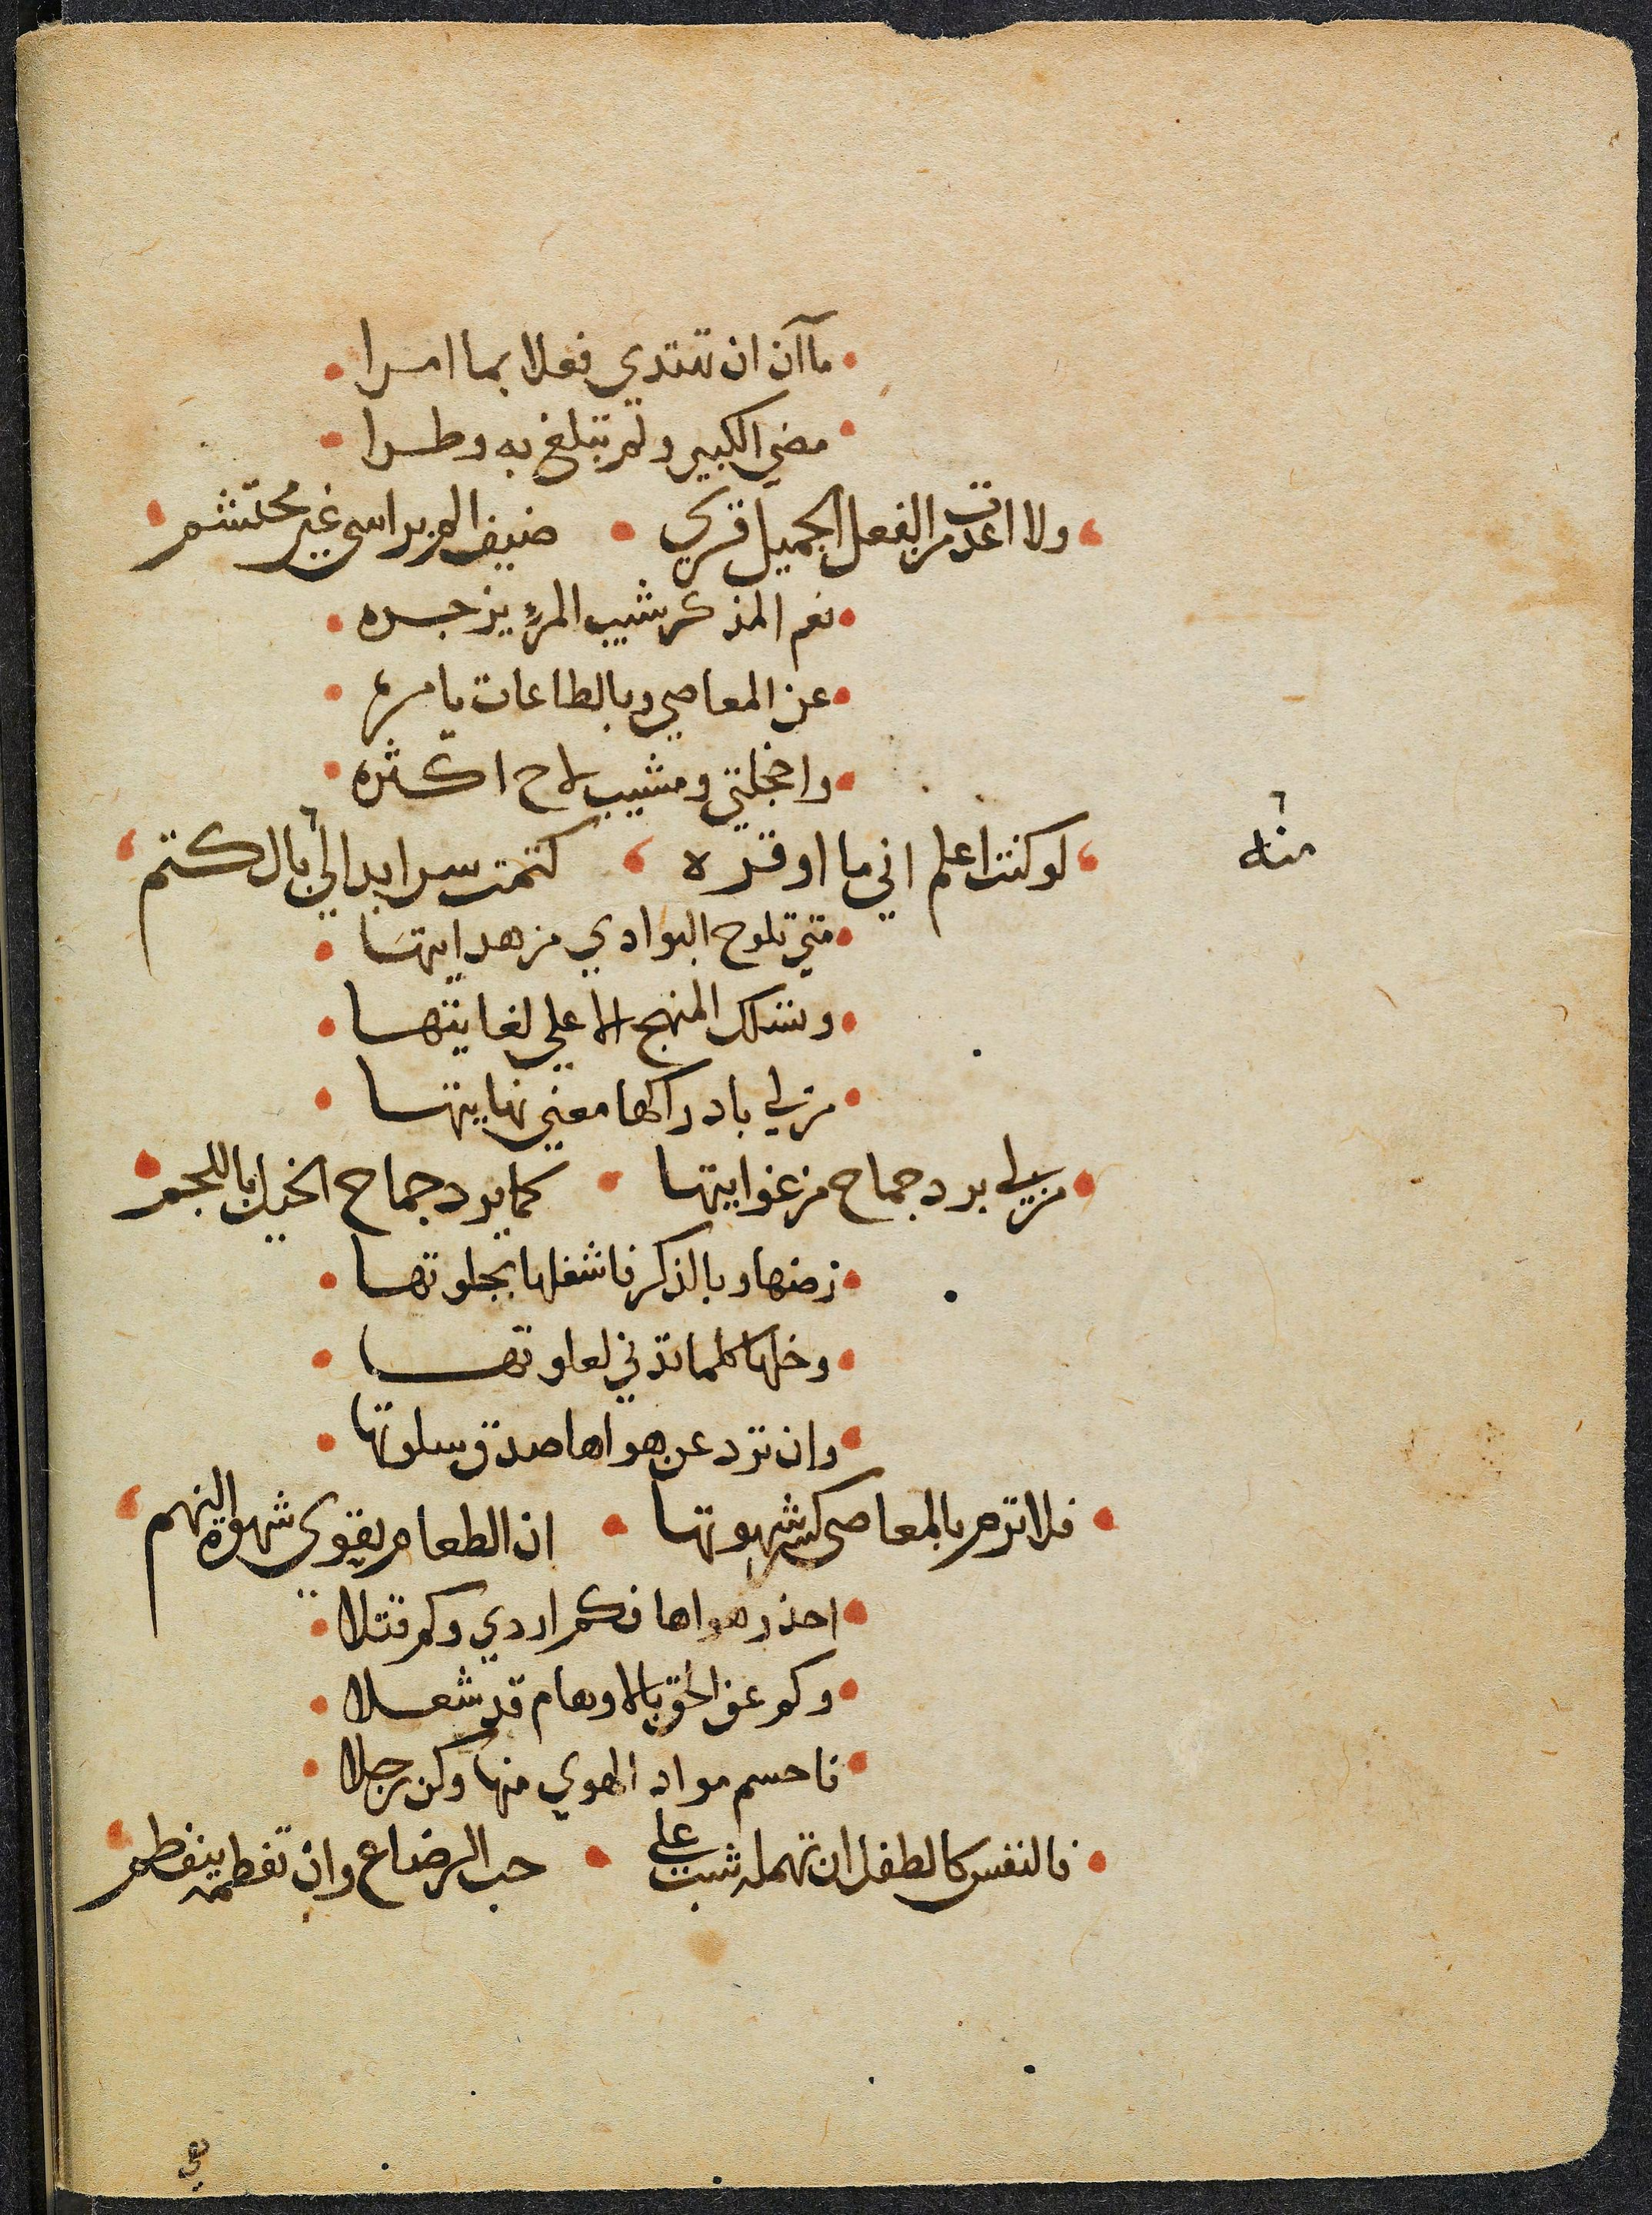 ما آن ان تبتدي فعلا بما امرا
مضي الكبير ولم تبلغ به وطرا
ولا اعدت من الفعل الجميل قري ضيف الم براسي غير محتشم
نعم المذكر شيب المرء يزجره
عن المعاصي وبالطاعات يامره
واخجلتي ومشيب لاح اكثره
لو كنت اعلم اني ما اوقره كتمت سرا بدا لي بالكتم
منه
متي تلوح البوادي من هدايتها
وتسلك المنهج الاعلي لغايتها
من لي بادراكها معني نهايتها
من لي برد جماح من غوايتها كما يرد جماح الخيل باللجم
زضها وبالذكر فاشغلها بجلوتها
وخلها كلما تدني لعلوتها
وان ترد عن هواها صدق سلوتها
فلا ترم بالمعاصي كسر شهوتها ان الطعام يقوي شهوة النهم
احذر هواها فكم اردي وكم قتلا
وكم عن الحق بالاوهام قد شغلا
فاحسم مواد الهوي منها وكن رجلا
فالنفس كالطفل ان تهمله شب علي حب الرضاع وان تفطمه ينفطم